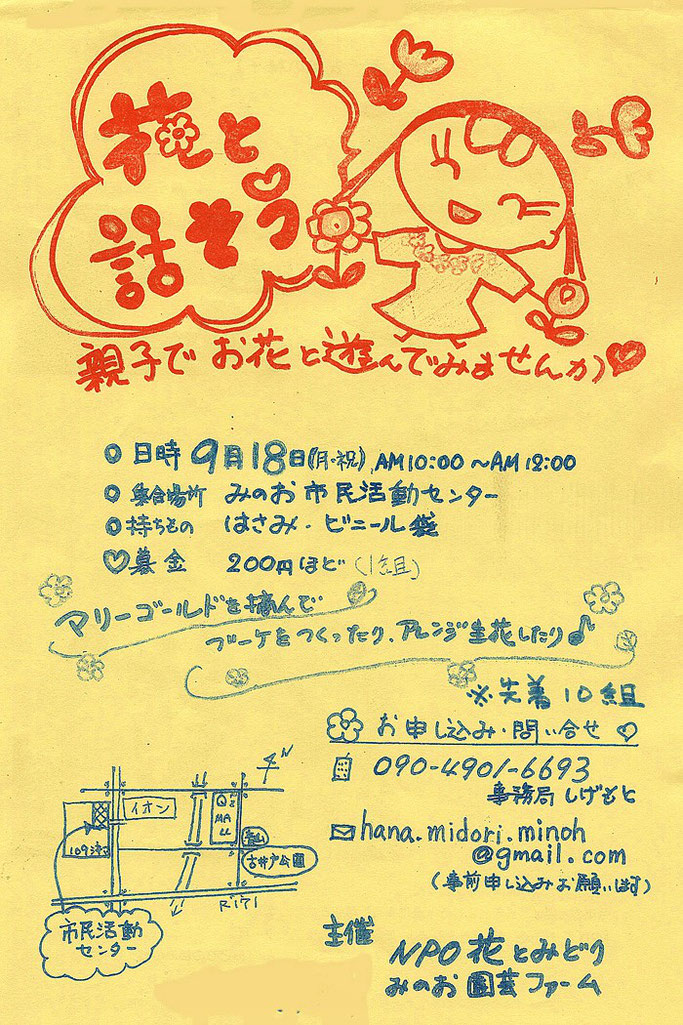 花と
話そう
親子でお花と遊んでみませんか
日時 9月18日(月・祝) AM10:00〜AM12:00
集合場所 みのお市民活動センター
持ちもの はさみ・ビニール袋
募金 200円ほど(1組)
マリーゴールドを摘んで
ブーケをつくったり、アレンジ生花したり♪
※先着10組
お申し込み・問い合せ
090-4901-6693
事務局 しげもと
hana.midori.minoh
@gmail.com
(事前申し込みお願いします)
N
イオン
Q's MALL
古井戸公園
R171
市民活動
センター
主催
NPO花とみどり
みのお園芸ファーム